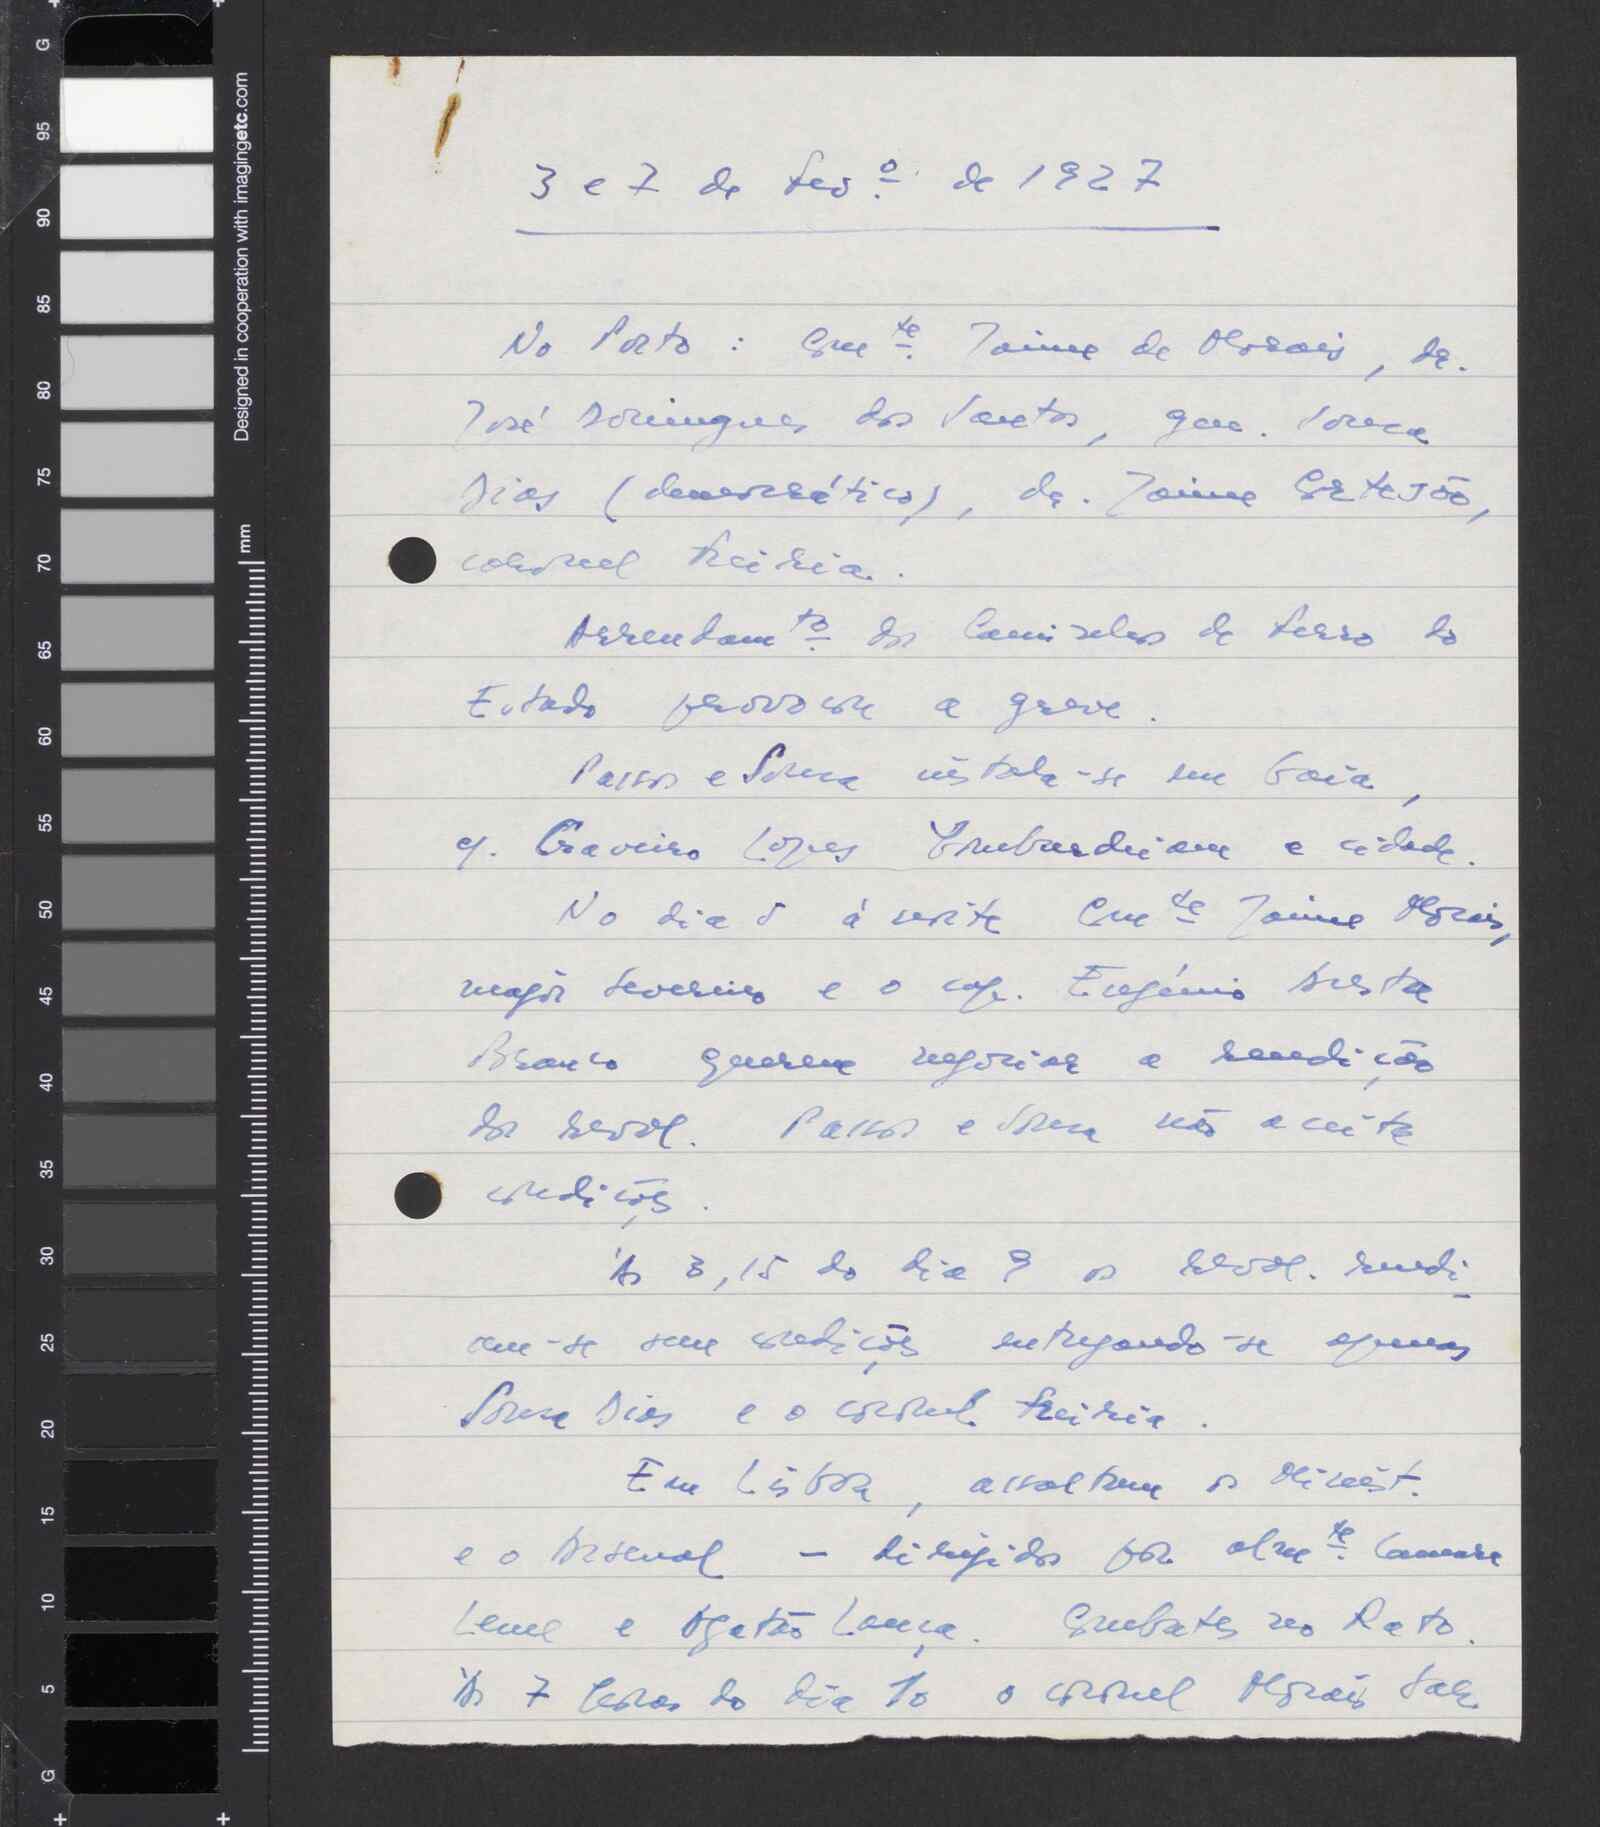 3 e 7 de fev.º de 1927
No Porto : Com.te Jaime de Morais, dr.
José Domingues dos Santos, gen. Sousa
Dias (democrático), dr. Jaime Cortesão,
coronel Freiria.
Arrendam.to dos Caminhos de ferro do
Estado provocou a greve.
Passos e Sousa instala-se em Gaia,
c/. Craveiro Lopes bombardeiam a cidade.
No dia 5 à noite Com.te Jaime Morais,
major Severino e o cap. Eugénio Aresta
Branco querem negociar a rendição
dos revol. Passos e Sousa não aceita
condições.
Às 3,15 do dia 8 os revol. rendi-
am-se sem condições entregando-se apenas
Sousa Dias e o coronel Freiria.
Em Lisboa, assaltam o Minist.
e o Arsenal – dirigidos por alm.te Camara
Leme e Agatão Lança. Combates no Rato.
Às 7 horas do dia 10 o coronel Morais
G
95
90
85
80
75
70
65
60
55
50
45
40
35
30
25
20
15
10
5
G
Designed in cooperation with imagingetc.com
mm